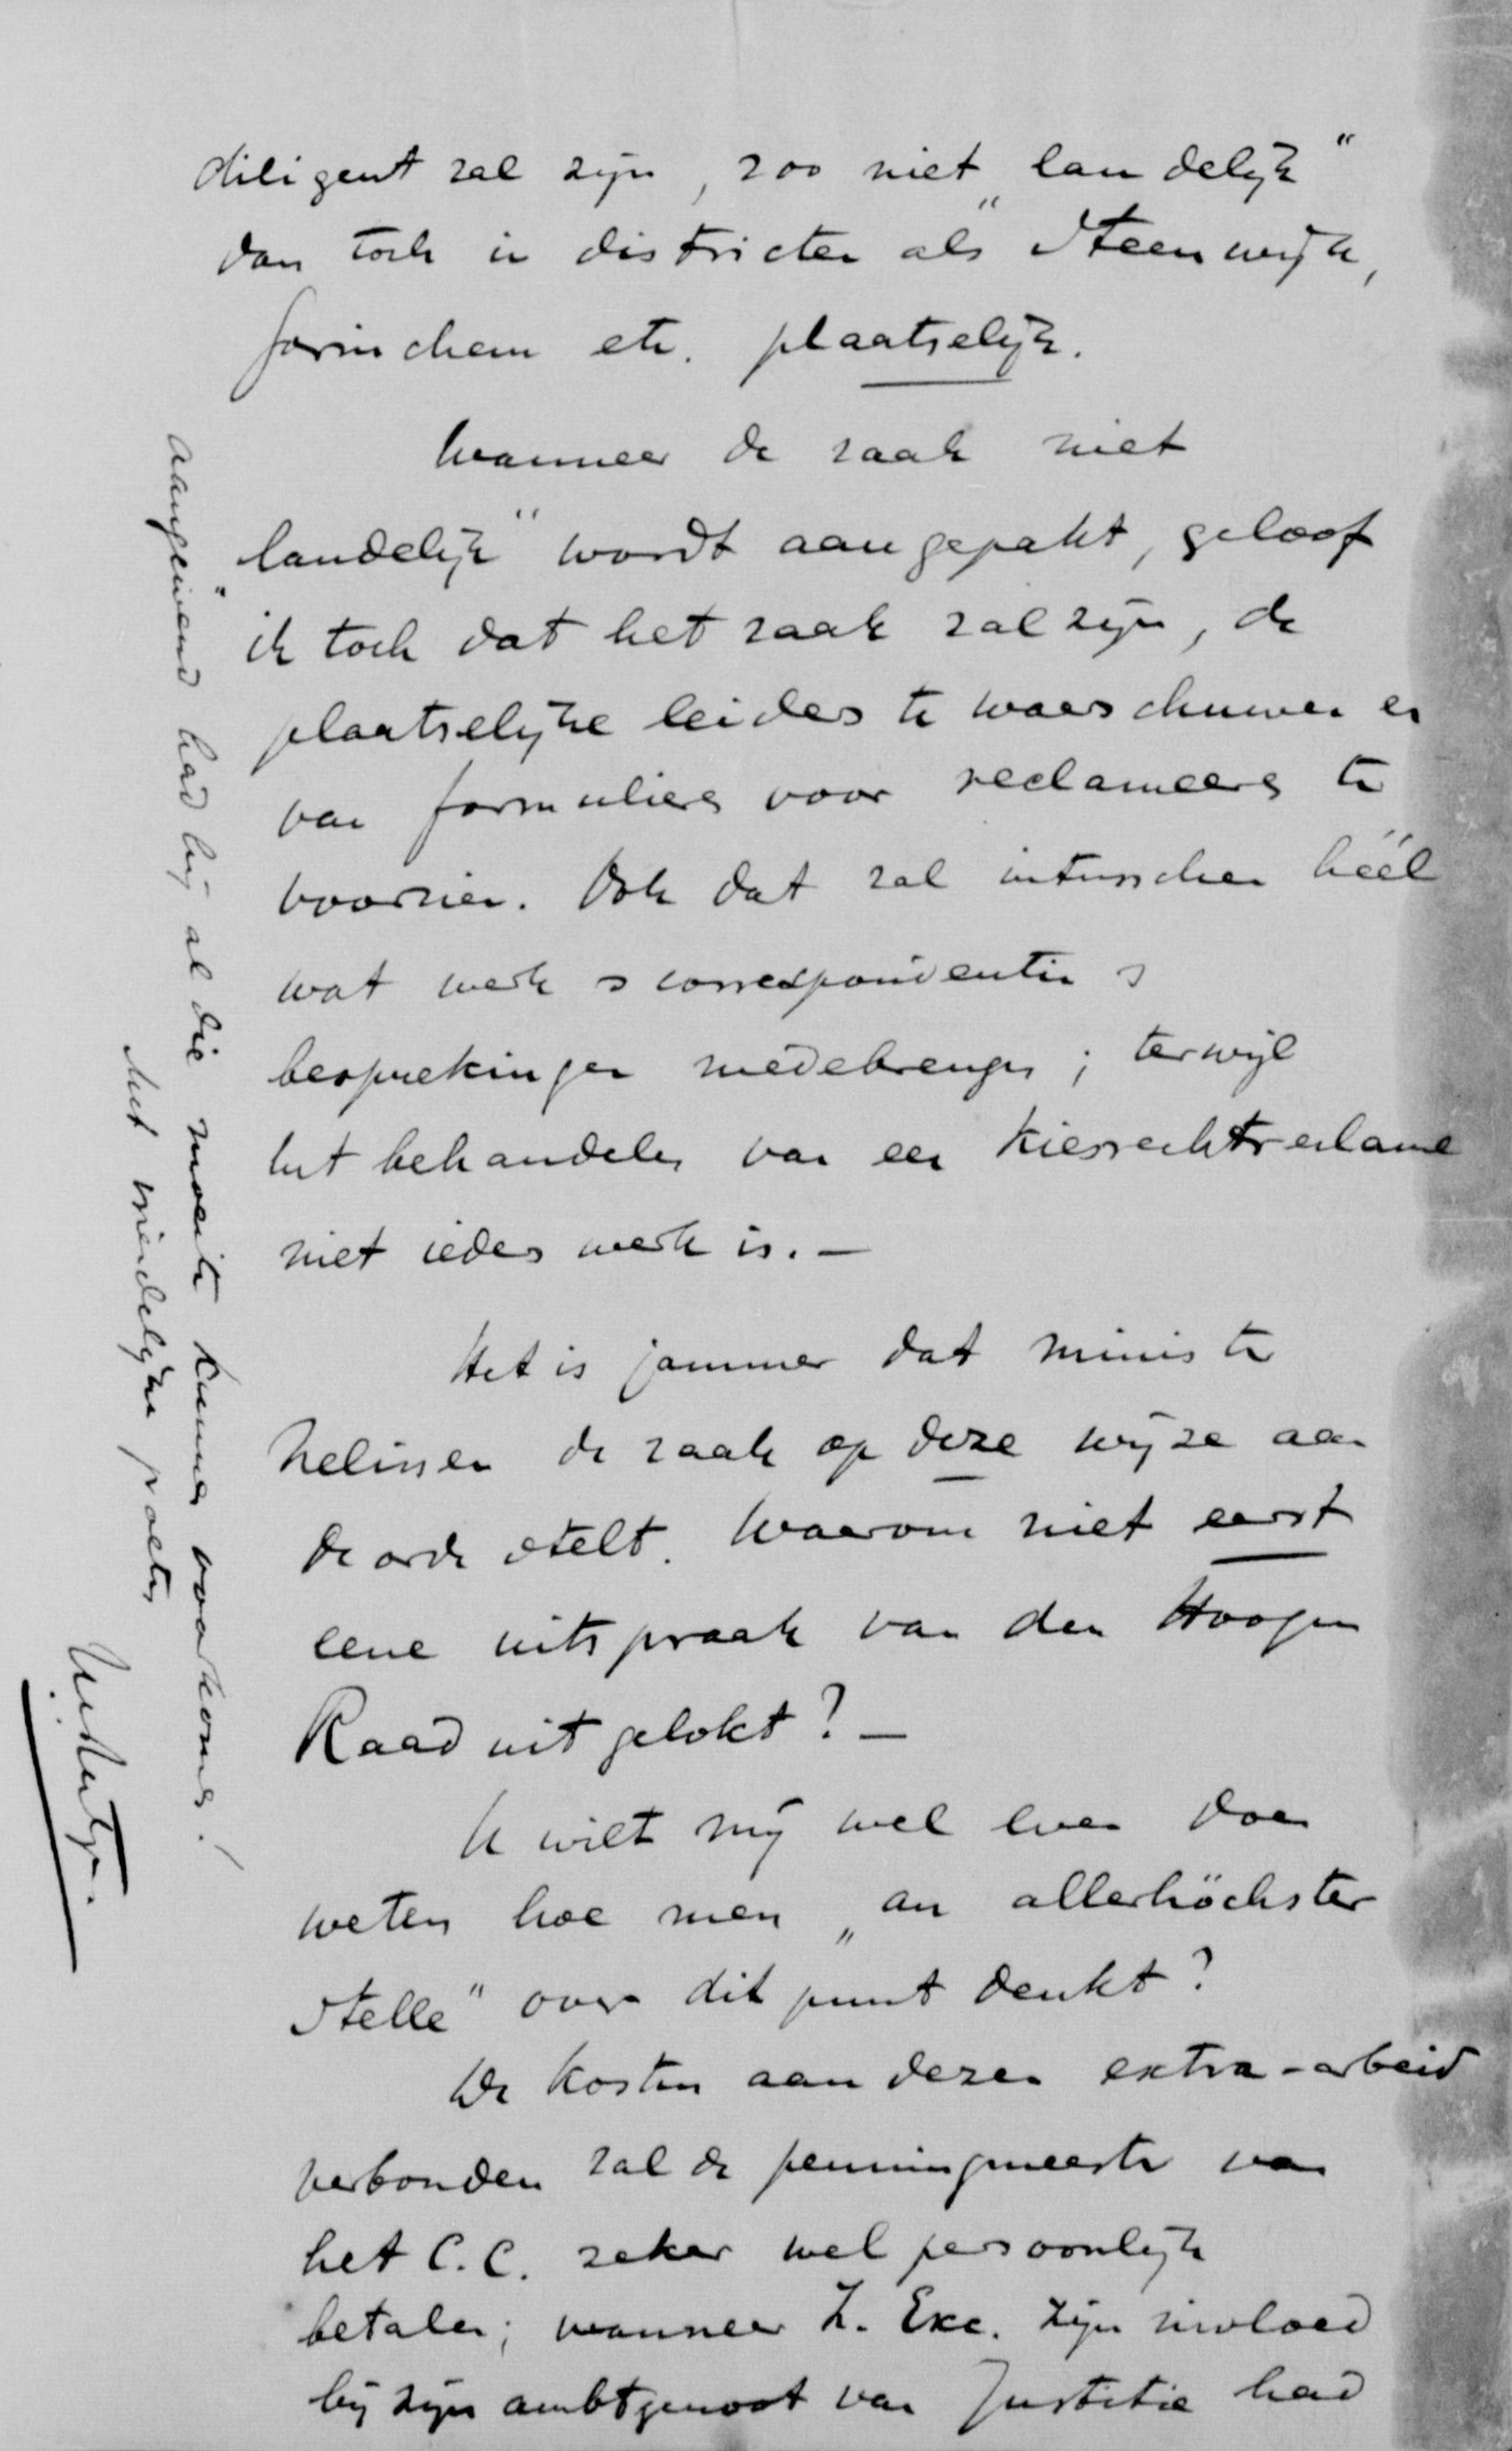 diligent zal zijn, zoo niet „landelijk"
dan toch in districten als Steenwijk,
Gorinchem etc. plaatselijk.
Wanneer de zaak niet
„landelijk" wordt aangepakt, geloof
ik toch dat het zaak zal zijn, de
plaatselijke leiders te waarschuwen en
van formulieren voor reclameeren te
voorzien. Ook dat zal intusschen héél
wat werk en correspondentie en
besprekingen medebrengen; terwijl
het behandelen van een kiesrechtreclame
niet ieders werk is. –
Het is jammer dat minister
Nelissen de zaak op deze wijze aan
de orde stelt. Waarom niet eerst
eene uitspraak van den Hoogen
Raad uitgelokt? –
U wilt mij wel even doen
weten hoe men „an allerhöchster
Stelle" over dit punt denkt?
De kosten aan dezen extra-arbeid
verbonden zal de penningmeester van
het C.C. zeker wel persoonlijk
betalen; wanneer Z. Exc. zijn invloed
bij zijn ambtgenoot van Justitie had
aangewend had hij al die moeite kunnen voorkomen!
Met vriendelijke groeten